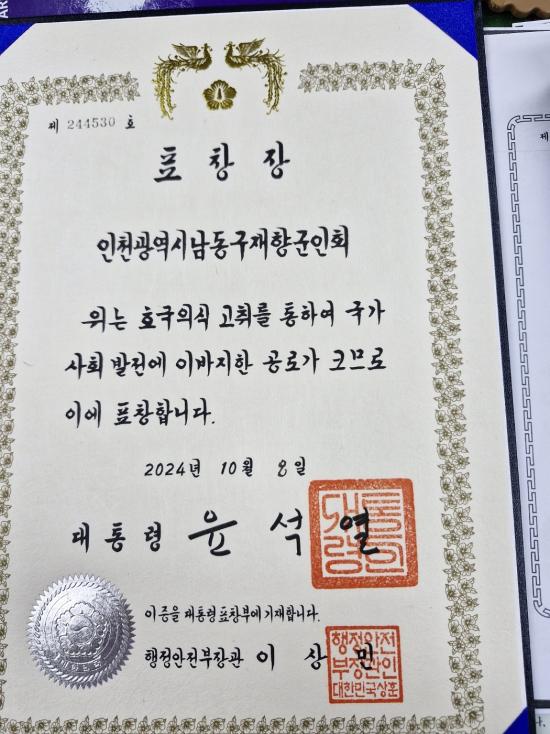 제 244530 호
표창장
인천광역시남동구재향군인회
위는 호국의식 고취를 통하여 국가
사회 발전에 이바지한 공로가 크므로
이에 표창합니다.
2024년 10월 8일
대통령 윤석열
대통령의인
이 증을 대통령표창부에 기재합니다.
행정안전부장관 이상민
행정안전
부장관인
대한민국상훈
제